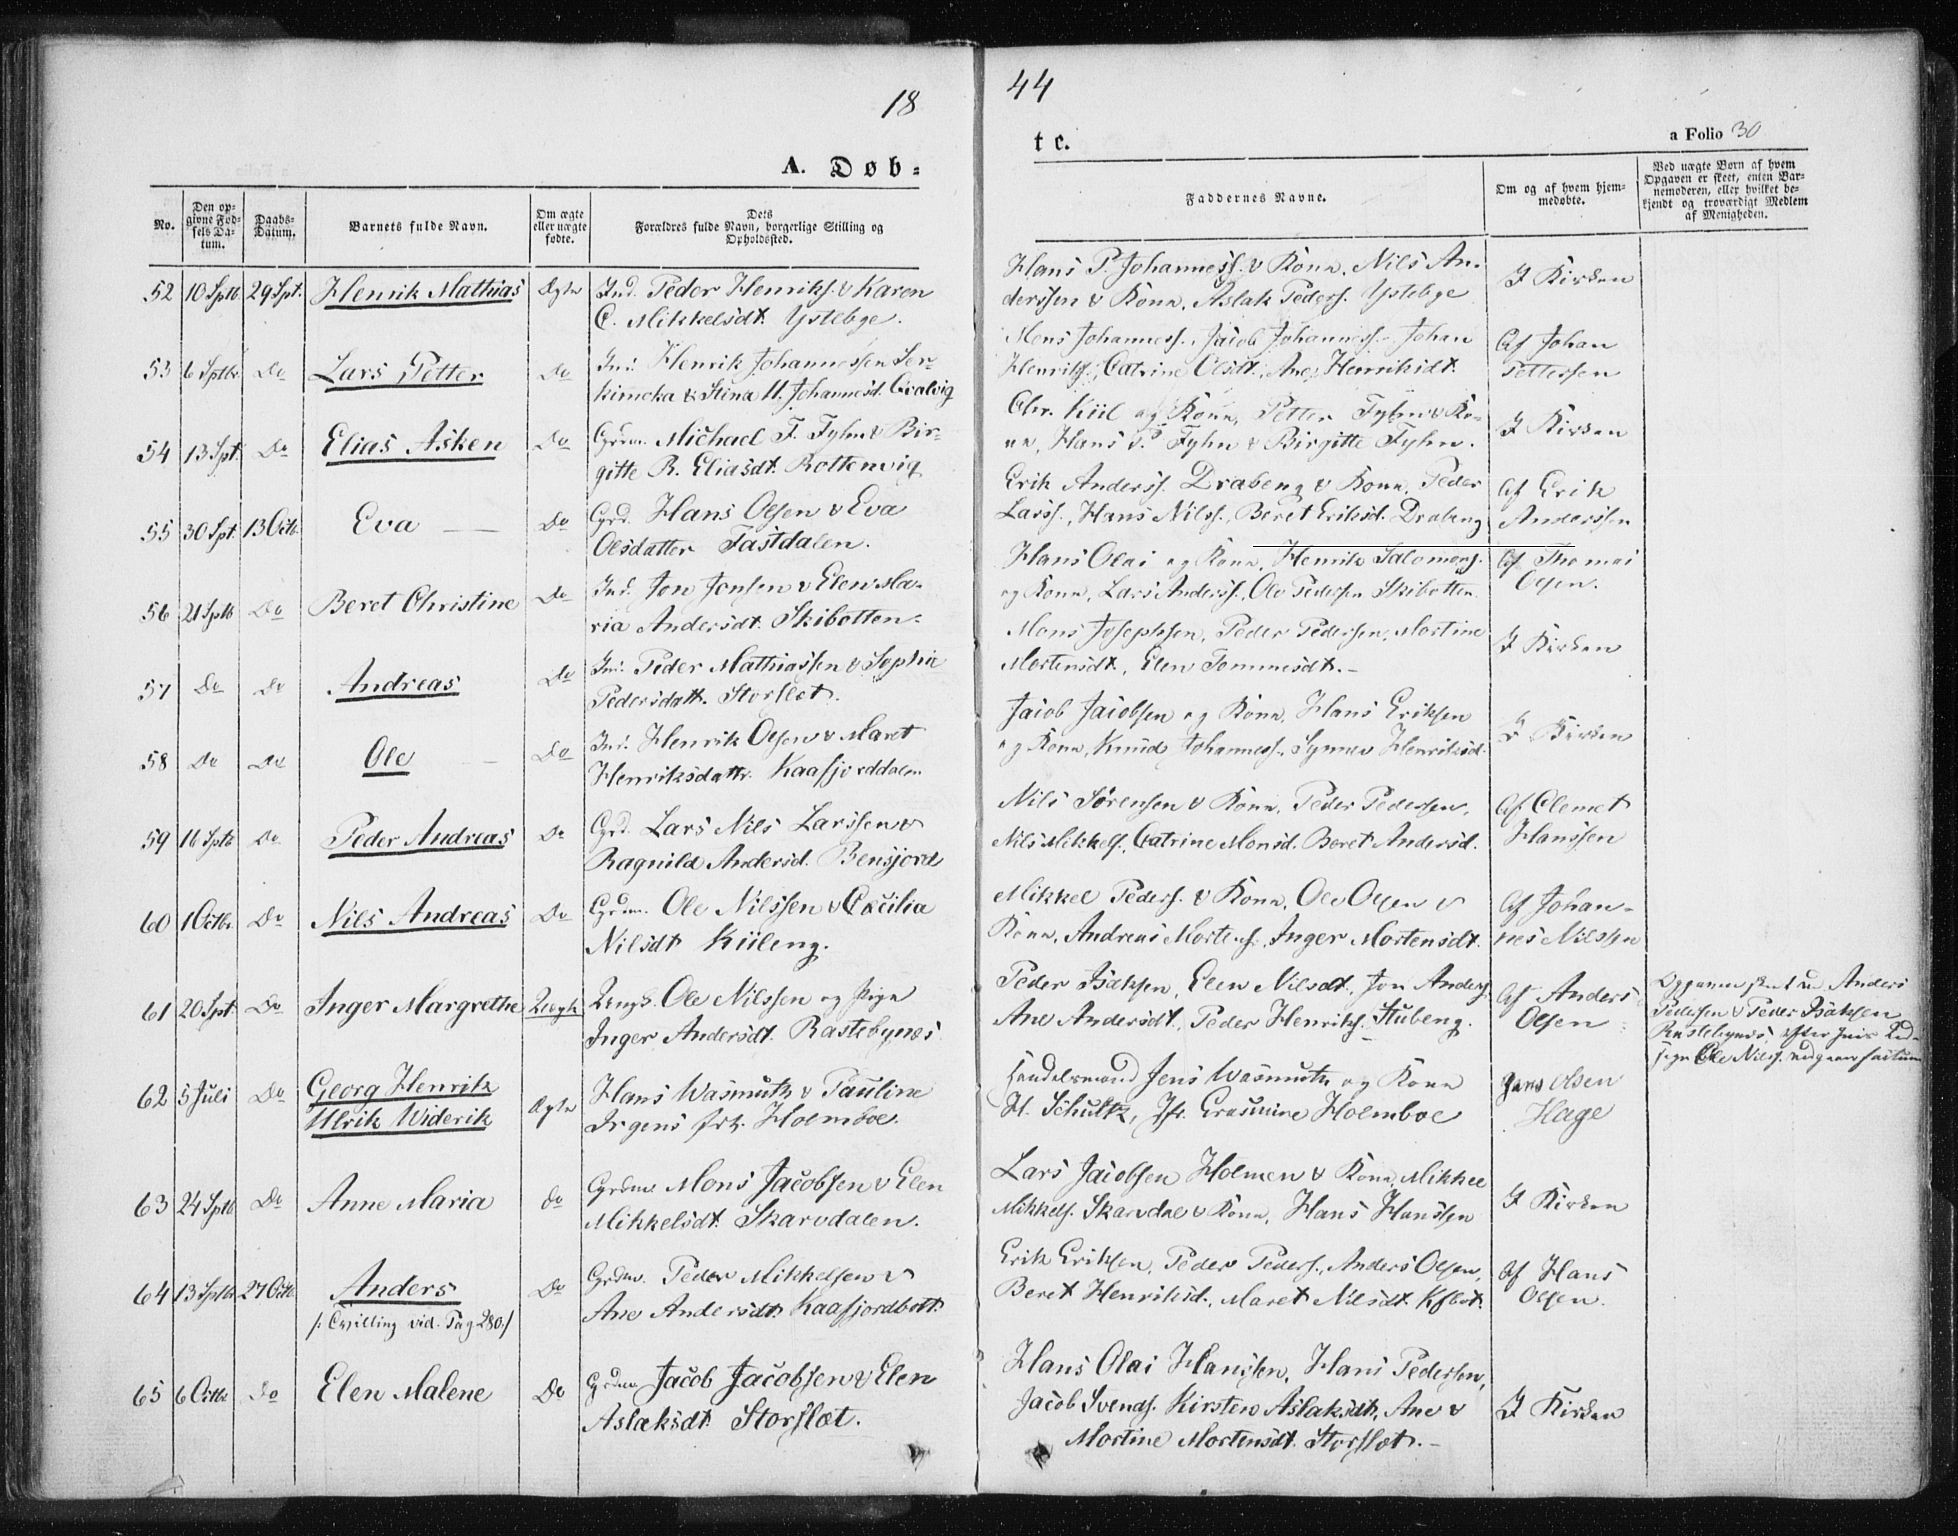 18
44
A. Døb-
t c.
a Folio 30
No.
Den op-
givne Fød-
sels Da-
tum.
Daabs-
Datum.
Barnets fulde Navn.
Om ægte
eller uægte
fødte.
Dets
Forældres fulde Navn, borgerlige Stilling og
Opholdssted.
Faddernes Navne.
Om og af hvem hjem-
medøbte.
Ved uægte Børn af hvem
Opgaven er skeet, enten Bar-
nemoderen, eller hvilket be-
kjendt og troværdigt Medlem
af Menigheden.
52 10 Sptb 29 Spt. Henrik Mathias Ægte Ind. Peder Henriks. & Karen
C. Mikkelsdt. Ystebye.
Hans P. Johanness. & Kone, Nils An-
derssen & Kone, Aslak Peders. Ystebye
I Kirken
53 6 Sptbr Do Lars Petter Do Ind. Henrik Johannessen
& Stina M. Johannesd.
Mons Johanness., Jacob Johanness. Johan
Henriks., Catrine Olsdt., Ane Henriksdt.
Af Johan
Pettersen
54 13 Spt. Do Elias Asken Do Grdm. Michael F. Fyhn & Bir-
gitte R. Eliasdt. Rottenvig
Chr. Kiil og Kone, Petter Fyhn & Ko-
ne, Hans P. Fyhn & Birgitte Fyhn.
I Kirken
55 30 Spt. 13 Octb. Eva Do Grd. Hans Olsen & Eva
Olsdatter Fastdalen.
Erik Anderss. Drabeng & Kone, Peder
Larss., Hans Nilss., Beret Eriksd. Drabeng
Af Erik
Anderssen
56 21 Sptb Do Beret Christine Do Ind. Jon Jonsen & Elen Ma-
ria Andersdt. Skibotten.
Hans Olai og Kone, Henrik Salomons.
og Kone, Lars Anderss., Ole Pedersen Skibotten
Af Thomas
Olsen.
57 Do Do Andreas Do Ind. Peder Mathiassen & Sophie
Pedersdatt. Storslet.
Mons Josephsen, Peder Pedersen, Martine
Mortensdt., Elen Tommesdt.
I Kirken
58 Do Do Ole Do Ind. Henrik Olsen & Maret
Henriksdattr. Kaafjorddalen
Jacob Jacobsen og Kone, Hans Eriksen
og Kone, Knud Johanness., Synnev Henriksd.
I Kirken
59 16 Sptb Do Peder Andreas Do Grd. Lars Nils Larssen &
Ragnild Andersd. Bensjord
Nils Sørensen & Kone, Peder Pedersen,
Nils Mikkels., Catrine Monsd. Beret Andersd.
Af Clemet
Hanssen
60 1 Octbr. Do Nils Andreas Do Grdm. Ole Nilssen & Cæcilia
Nilsdt. Kiileng.
Mikkel Peders. & Kone, Ole Olsen &
Kone, Andreas Mortens., Inger Mortensdt.
Af Johan-
nes Nilssen
61 20 Spt. Do Inger Margrethe Uægte Ungk. Ole Nilssen og Pige
Inger Andersdt. Rastebynæs
Peder Isaksen, Elen Nilsdt., Jon Anders.
Ane Andersdt., Peder Henriks. Stubeng.
Af Anders
Olsen
Anders
Pedersen & Peder Isaksen
Rastebynæs,
Ole Nilss.
62 5 Juli Do Georg Henrik
Ulrik Widerik Ægte Hans Wasmuth & Pauline
Irgens f. Holmboe.
Handelsmand Jens Wasmuth og Kone
H. Schultz, Jfr. Grasmine Holmboe
Jens Olsen
Hage
63 24 Sptb Do Anne Maria do Grdm. Mons Jacobsen & Elen
Mikkelsdt. Skarvdalen.
Lars Jacobsen Holmen & Kone, Mikkel
Mikkels. Skarvdal & Kone, Hans Hanssen
I Kirken
64 13 Sptbr. 27 Octb. Anders
/: Tvilling vid. Pag 280:/ Do Grdm. Peder Mikkelsen &
Ane Andersdt. Kaafjordbott.
Erik Eriksen, Peder Peders., Anders Olsen,
Beret Henriksd., Maret Nilsdt. Kfbot.
Af Hans
Olsen.
65 6 Octbr Do Elen Malene Do Grdm. Jacob Jacobsen & Elen
Aslaksdt. Storslet.
Hans Olai Hanssen, Hans Pedersen,
Jacob Svends. Kirsten Aslaksdt, Ane &
Martine Mortensdt. Storslet.
I Kirken